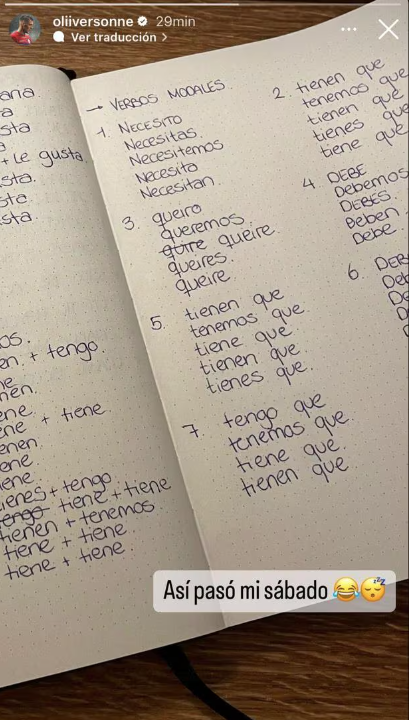 oliiversonne 29min
Ver traducción >
ana.
a
sta
a
+ le gusta.
sta.
sta
sta
os.
en. + tengo.
ne
nen.
ene.
ene + tiene.
enen
ene
iene.
ienes + tengo
tengo tiene + tiene
tienen + tenemos
tiene + tiene.
tiene + tiene.
→ VERBOS MODALES.
1. NECESITO
Necesitas.
Necesitemos
Necesita
Necesitan.
2. tienen que
tenemos que
tienen que
tienes que
tiene que.
3. queiro
queremos.
quire queire.
queires.
queire.
4. DEBE
Debemos
DEBES.
Deben.
Debe.
5. tienen que
tenemos que
tiene que
tienen que.
tienes que.
6. DEB
Deb
De
D
7. tengo que
tenemos que.
tiene que.
tienen que
Así pasó mi sábado 😂😴